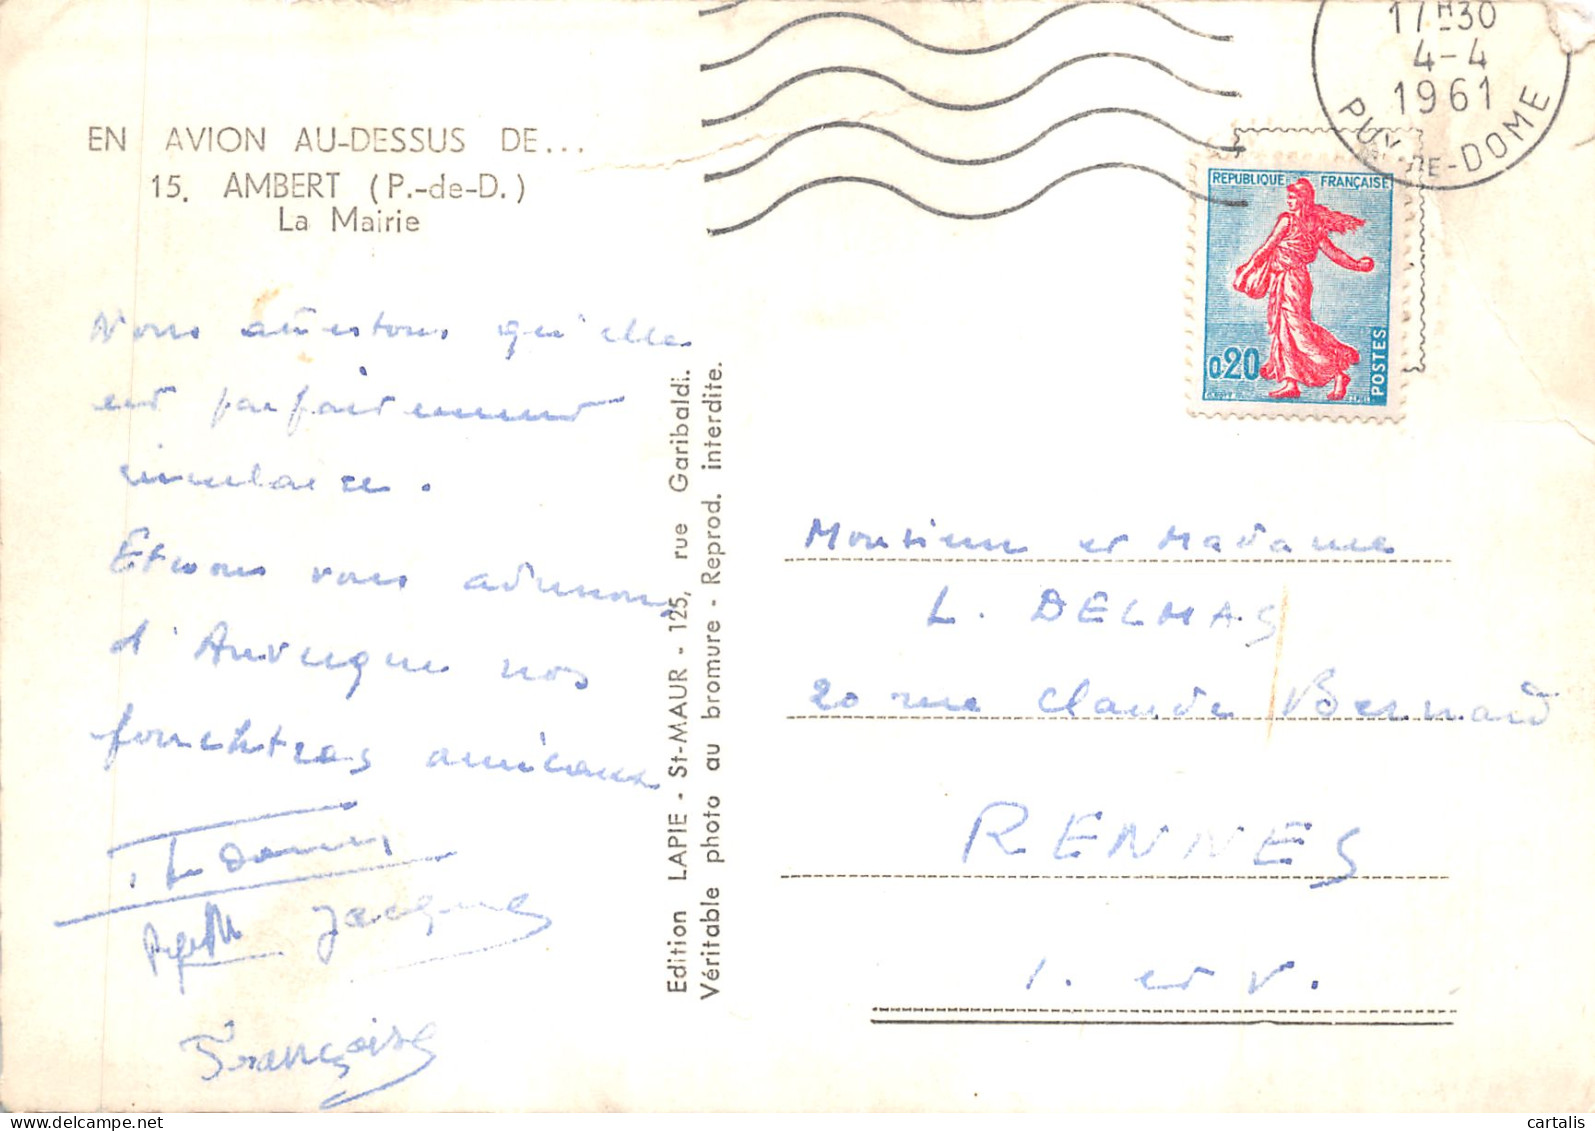 EN AVION AU-DESSUS DE...
15. AMBERT (P.-de-D.)
La Mairie
Nous attestons qu'elle
est parfaitement
circulaire.
Et nous vous adressons
d'Auvergne nos
amicaux
Jacques
Françoise
Edition LAPIE - St-MAUR - 125, rue Garibaldi.
Véritable photo au bromure - Reprod. interdite.
17H30
4-4
1961
PUY-DE-DOME
REPUBLIQUE FRANÇAISE
0,20
POSTES
Monsieur et Madame
L. DELMAS
20 rue Claude Bernard
RENNES
I. et V.
cartalis